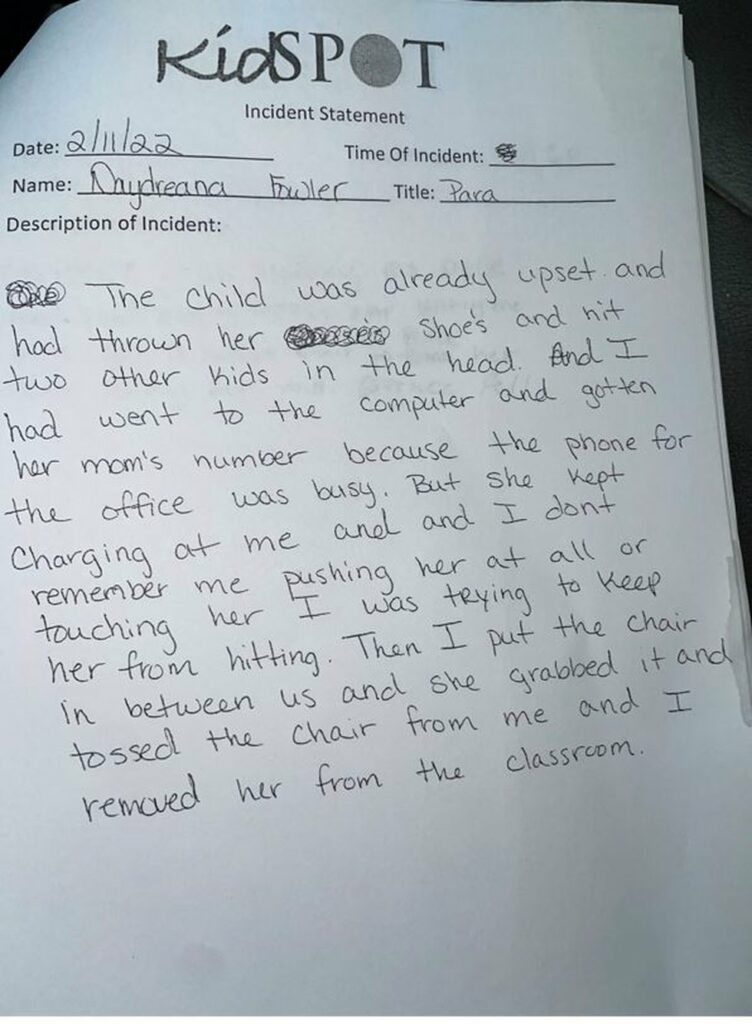 KidSPOT
Incident Statement
Date: 2/11/22 Time Of Incident:
Name: Naydreana Fowler Title: Para
Description of Incident:
The child was already upset and
had thrown her shoe's and hit
two other kids in the head. And I
had went to the computer and gotten
her mom's number because the phone for
the office was busy. But she kept
Charging at me and and I dont
remember me pushing her at all or
touching her I was trying to keep
her from hitting. Then I put the chair
in between us and she grabbed it and
tossed the chair from me and I
removed her from the classroom.